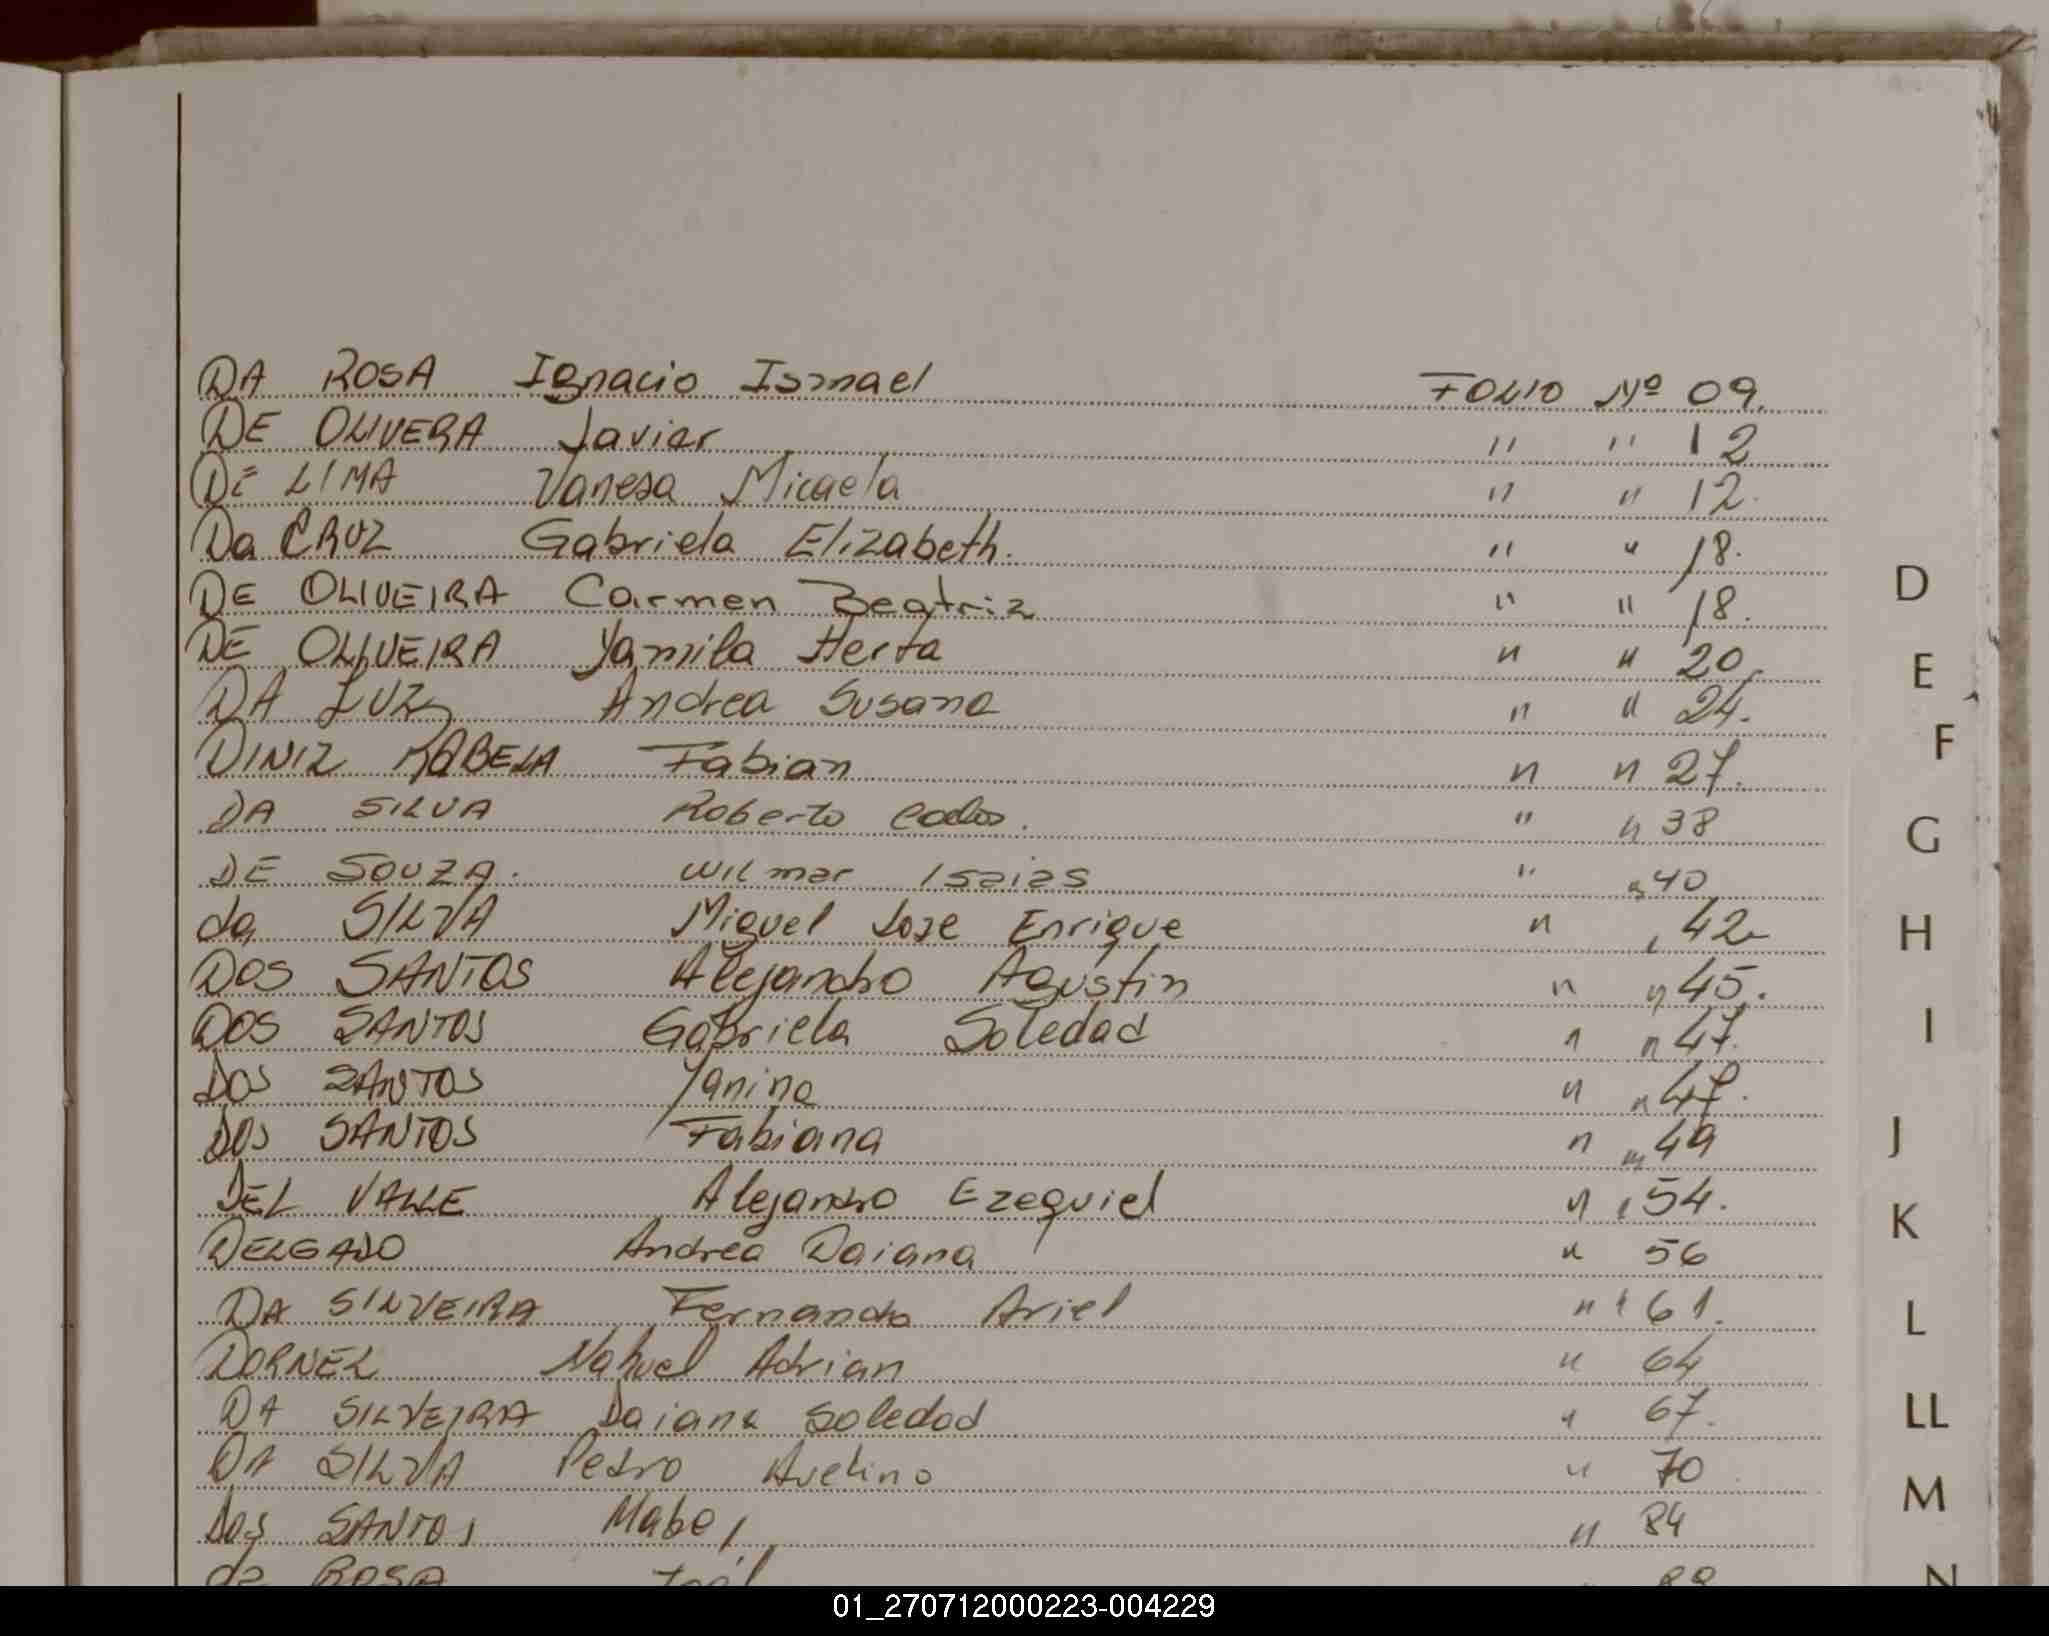 DA ROSA Ignacio Ismael FOLIO Nº 09.
DE OLIVERA Javier " " 12
DE LIMA Vanesa Micaela " " 12.
Da CRUZ Gabriela Elizabeth. " " 18.
DE OLIVEIRA Carmen Beatriz " " 18.
DE OLIVEIRA Yamila Herta " " 20.
DA LUZ Andrea Susana " " 24.
DINIZ RABELA Fabian " " 27.
DA SILVA Roberto Carlos. " " 38
DE SOUZA. WILmar Isaias " " 40
da SILVA Miguel Jose Enrique " " 42
DOS SANTOS Alejandro Agustin " " 45.
DOS SANTOS Gabriela Soledad " " 47.
DOS SANTOS Yanina " " 47.
DOS SANTOS Fabiana " " 49
DEL VALLE Alejandro Ezequiel " " 54.
DELGADO Andrea Daiana " 56
DA SILVEIRA Fernando Ariel " " 61.
DORNEL Nahuel Adrian " 64
DA SILVEIRA Daiana Soledad " 67.
DA SILVA Pedro Avelino " 70
Dos SANTOS Mabel " 84
da ROSA
D
E
F
G
H
I
J
K
L
LL
M
N
01_270712000223-004229